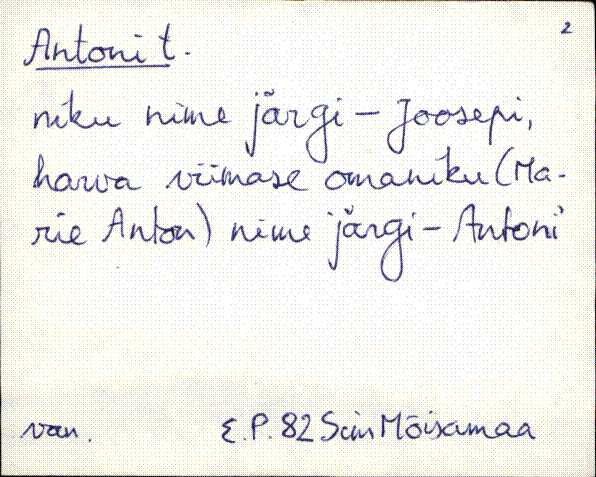 2
Antoni t.
niku nime järgi – Joosepi,
harva viimase omaniku (Ma-
rie Anton) nime järgi – Antoni
van. E.P. 82 Siin Mõisamaa